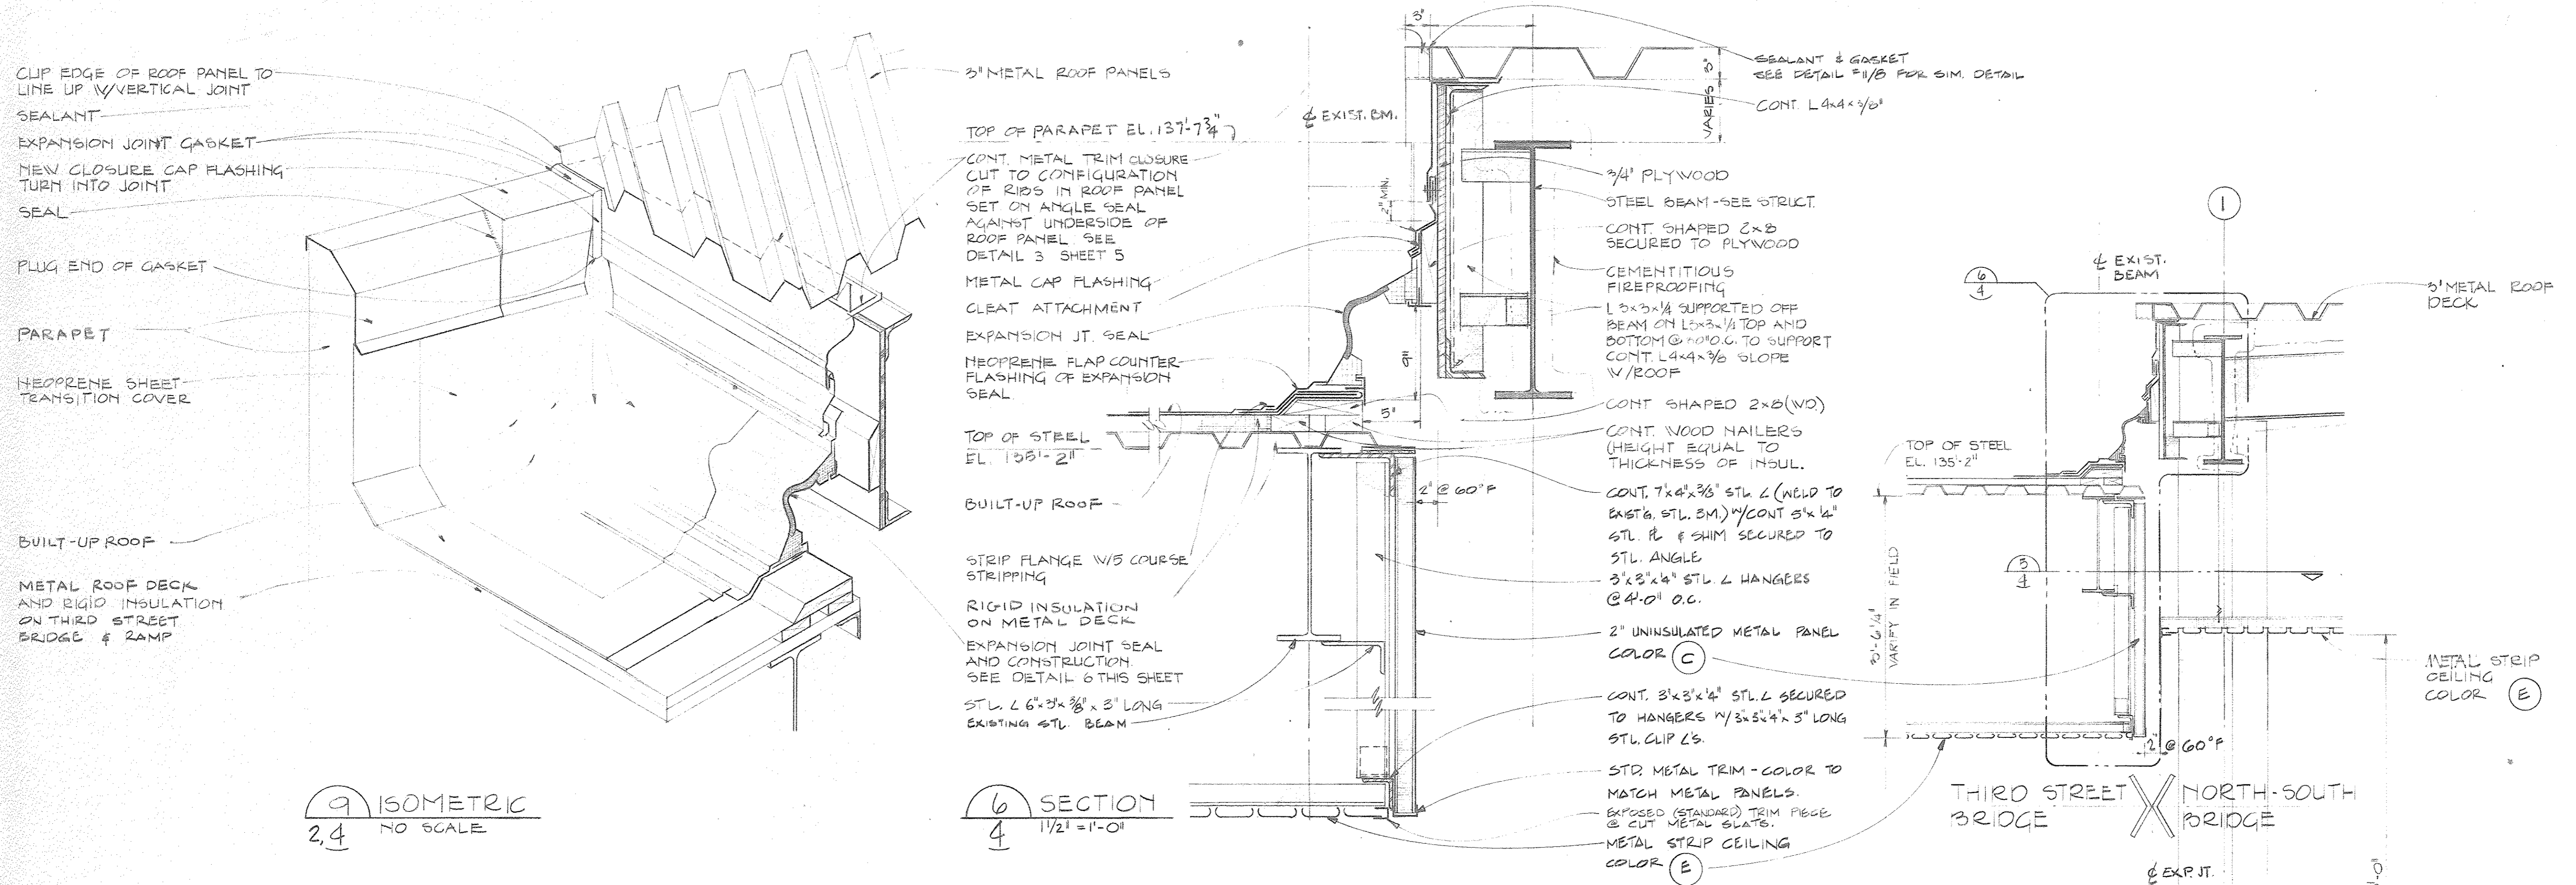 CLIP EDGE OF ROOF PANEL TO
LINE UP W/VERTICAL JOINT
SEALANT
EXPANSION JOINT GASKET
NEW CLOSURE CAP FLASHING
TURN INTO JOINT
SEAL
PLUG END OF GASKET
PARAPET
NEOPRENE SHEET
TRANSITION COVER
BUILT-UP ROOF
METAL ROOF DECK
AND RIGID INSULATION
ON THIRD STREET
BRIDGE & RAMP
9 ISOMETRIC
2,4 NO SCALE
3" METAL ROOF PANELS
TOP OF PARAPET EL. 137'-7 3/4"
CONT. METAL TRIM CLOSURE
CUT TO CONFIGURATION
OF RIBS IN ROOF PANEL
SET ON ANGLE SEAL
AGAINST UNDERSIDE OF
ROOF PANEL SEE
DETAIL 3 SHEET 5
METAL CAP FLASHING
CLEAT ATTACHMENT
EXPANSION JT. SEAL
NEOPRENE FLAP COUNTER
FLASHING OF EXPANSION
SEAL
TOP OF STEEL
EL. 135'-2"
BUILT-UP ROOF
STRIP FLANGE W/5 COURSE
STRIPPING
RIGID INSULATION
ON METAL DECK
EXPANSION JOINT SEAL
AND CONSTRUCTION.
SEE DETAIL 6 THIS SHEET
STL. L 6"x3"x3/8" x 3" LONG
EXISTING STL. BEAM
6 SECTION
4 1 1/2" = 1'-0"
3"
℄ EXIST. BM.
2" MIN.
VARIES 3"
5"
2" @ 60°F
SEALANT & GASKET
SEE DETAIL #11/8 FOR SIM. DETAIL
CONT. L 4x4x3/8"
3/4" PLYWOOD
STEEL BEAM-SEE STRUCT.
CONT. SHAPED 2x8
SECURED TO PLYWOOD
CEMENTITIOUS
FIREPROOFING
L 3x3x1/4 SUPPORTED OFF
BEAM ON L3x3x1/4 TOP AND
BOTTOM @ O.C. TO SUPPORT
CONT. L4x4x3/8 SLOPE
W/ROOF
CONT SHAPED 2x8(WD.)
CONT. WOOD NAILERS
(HEIGHT EQUAL TO
THICKNESS OF INSUL.
CONT. 7"x4"x3/8" STL. L (WELD TO
EXIST'G. STL. BM.) W/CONT 5"x1/4"
STL. PL & SHIM SECURED TO
STL. ANGLE
3"x3"x1/4" STL. L HANGERS
@ 4'-0" O.C.
2" UNINSULATED METAL PANEL
COLOR C
CONT. 3"x3"x1/4" STL. L SECURED
TO HANGERS W/ 3"x3"x1/4"x 3" LONG
STL. CLIP L'S.
STD. METAL TRIM - COLOR TO
MATCH METAL PANELS.
EXPOSED (STANDARD) TRIM PIECE
@ CUT METAL SLATS.
METAL STRIP CEILING
COLOR E
1
6
4
℄ EXIST.
BEAM
3" METAL ROOF
DECK
TOP OF STEEL
EL. 135'-2"
VARIFY IN FIELD
4
METAL STRIP
CEILING
COLOR E
2" @ 60°F
THIRD STREET
BRIDGE
NORTH-SOUTH
BRIDGE
℄ EXP. JT.